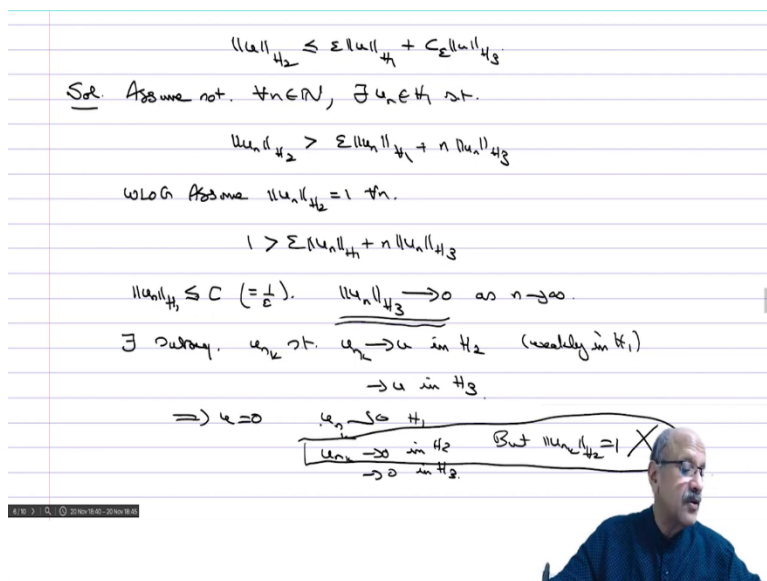 ||u||_{H_2} ≤ ε||u||_{H_1} + C_ε||u||_{H_3}.
Sol. Assume not. ∀n∈ℕ, ∃ u_n ∈ H_1 st.
||u_n||_{H_2} > ε||u_n||_{H_1} + n ||u_n||_{H_3}
WLOG Assume ||u_n||_{H_2} = 1 ∀n.
1 > ε||u_n||_{H_1} + n||u_n||_{H_3}
||u_n||_{H_1} ≤ C (= 1/ε). ||u_n||_{H_3} → 0 as n→∞.
∃ subseq. u_{n_k} st. u_{n_k} → u in H_2 (weakly in H_1)
→ u in H_3
⇒ u=0 H_1
u_{n_k} → 0 in H_2 But ||u_{n_k}||_{H_2} = 1 X
→ 0 in H_3.
6/10 20 Nov 18:40 – 20 Nov 18:45